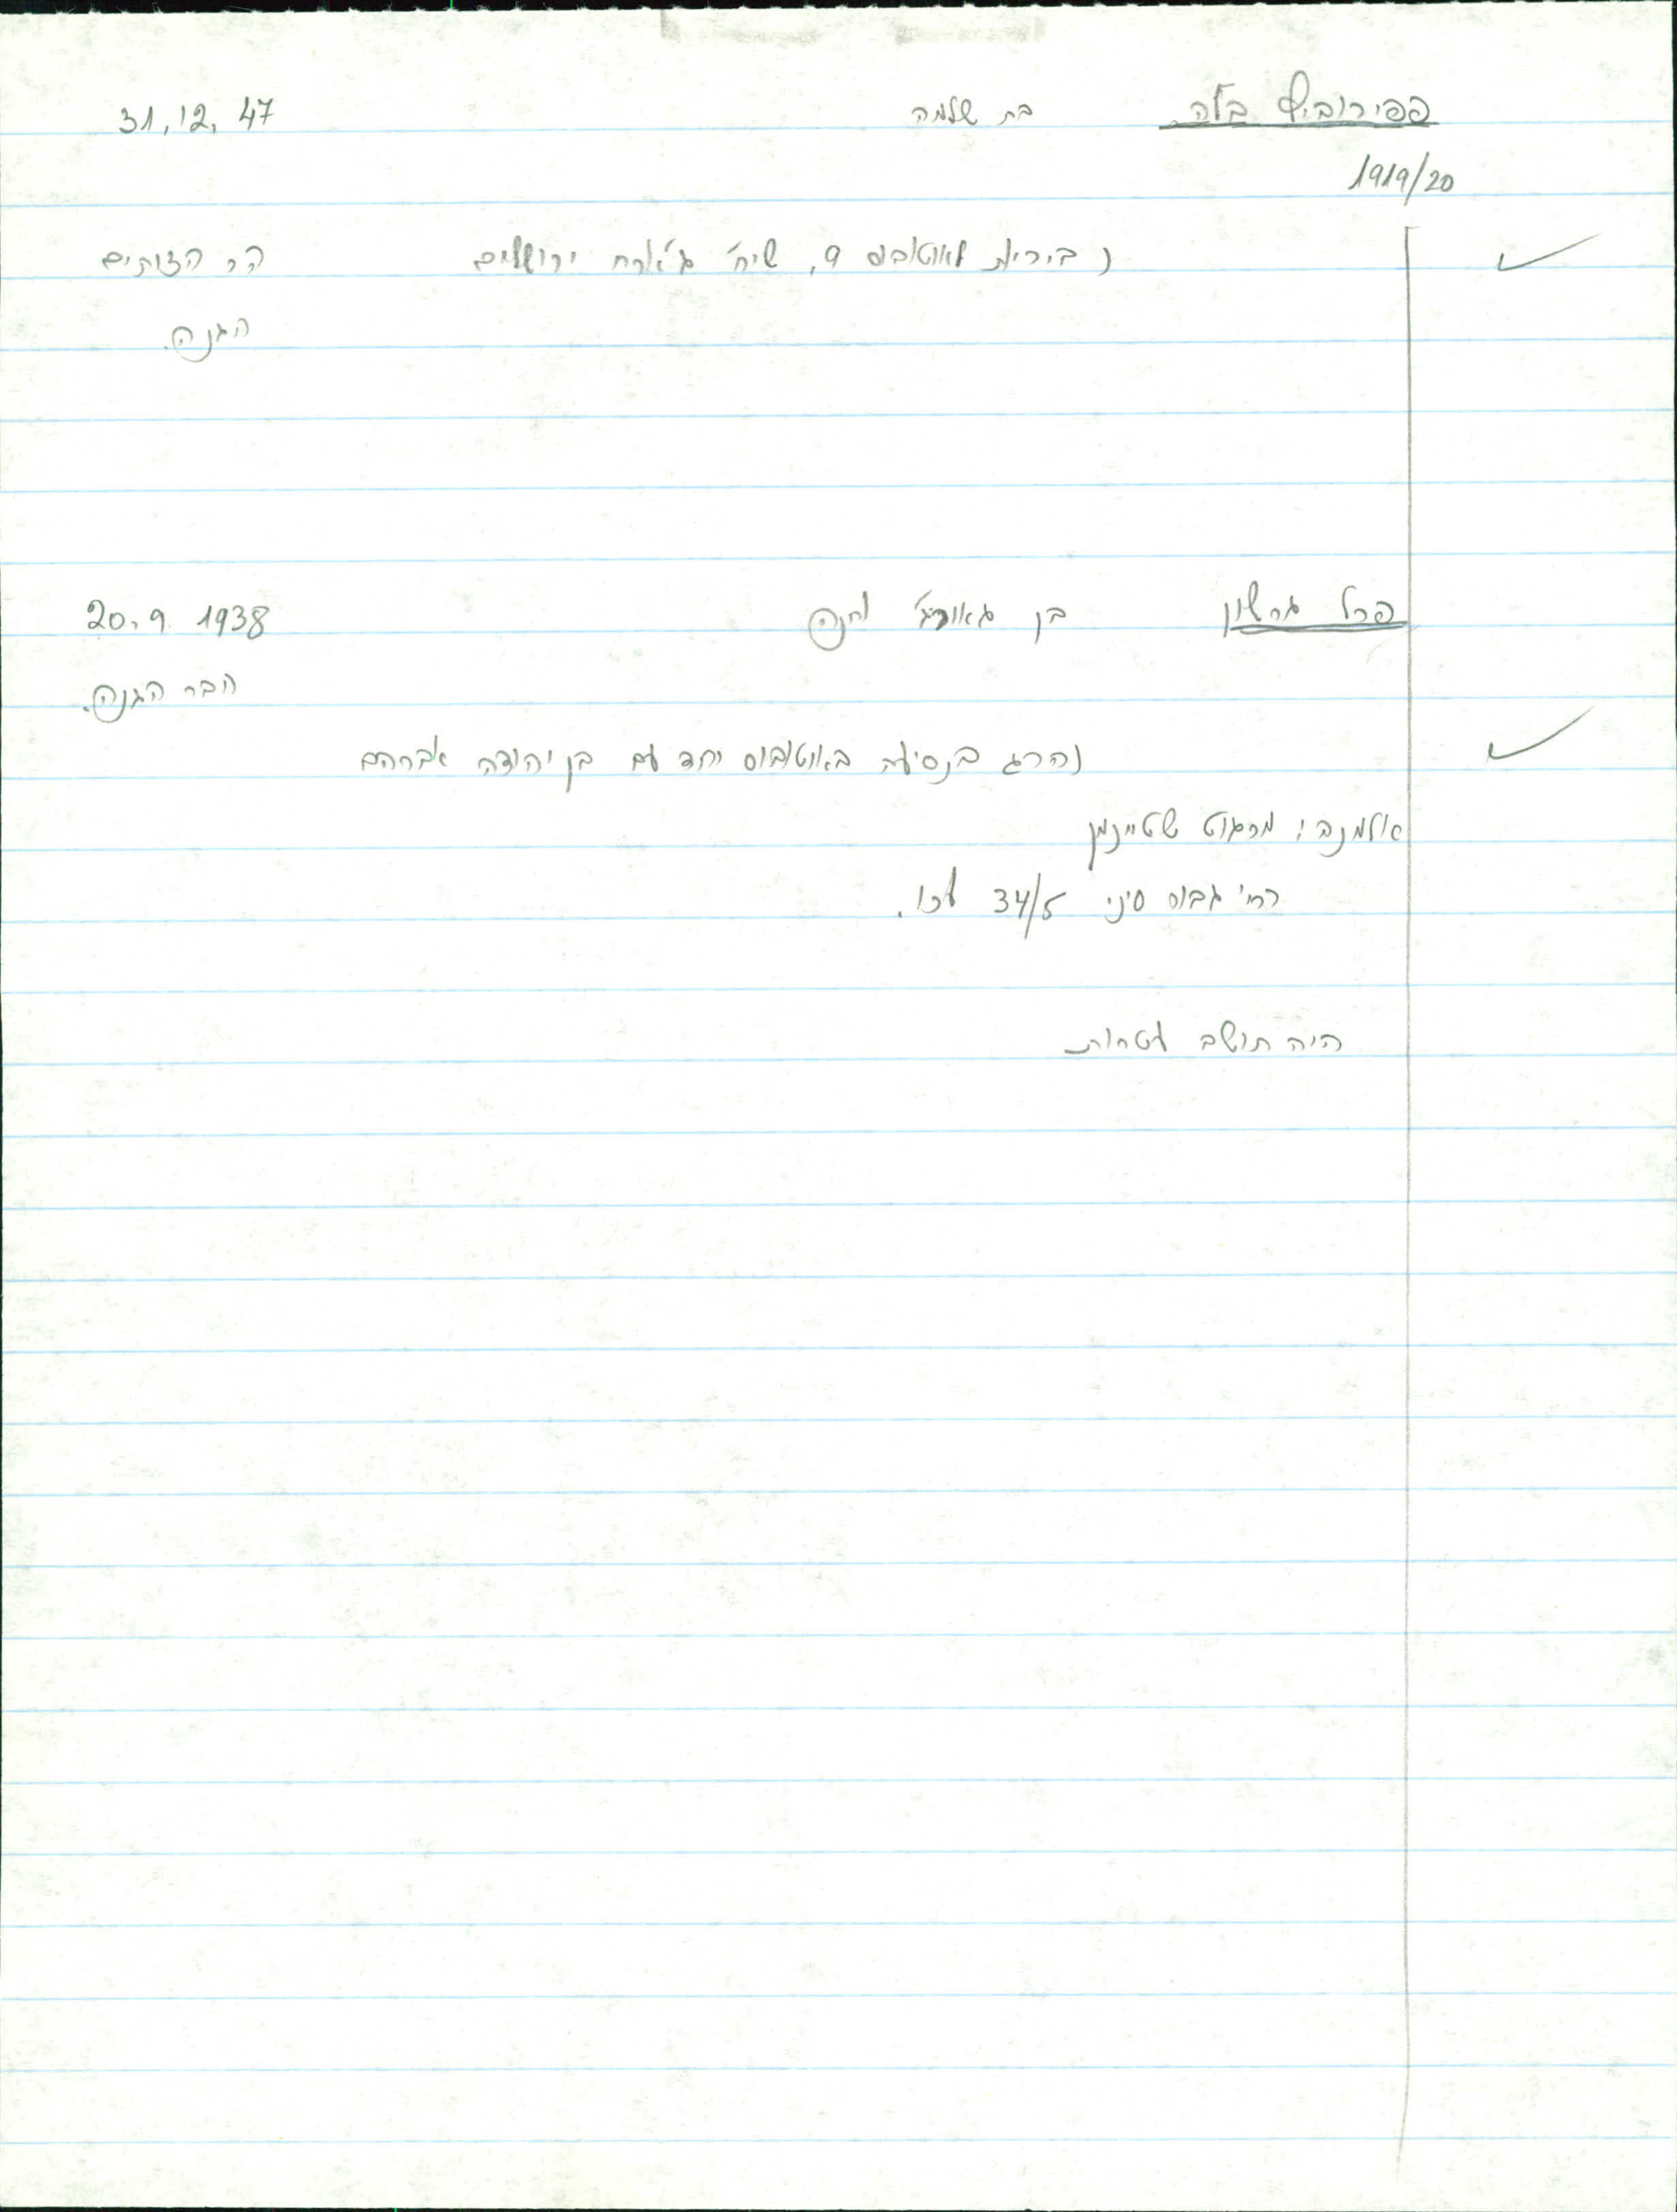 פפירוביץ בלה בת שלמה 31.12.47
1919/20
ביריות לאוטובוס 9, שיח' ג'ארח ירושלים הר הזיתים
הגנה.
פרל גרשון בן גאורג' וחנה 20.9 1938
חבר הגנה.
נהרג בנסיעה באוטובוס יחד עם בן יהודה אברהם
אלמנה: מרגוט שטיינמן
רח' סיני 34/5 עכו.
היה תושב עטרות